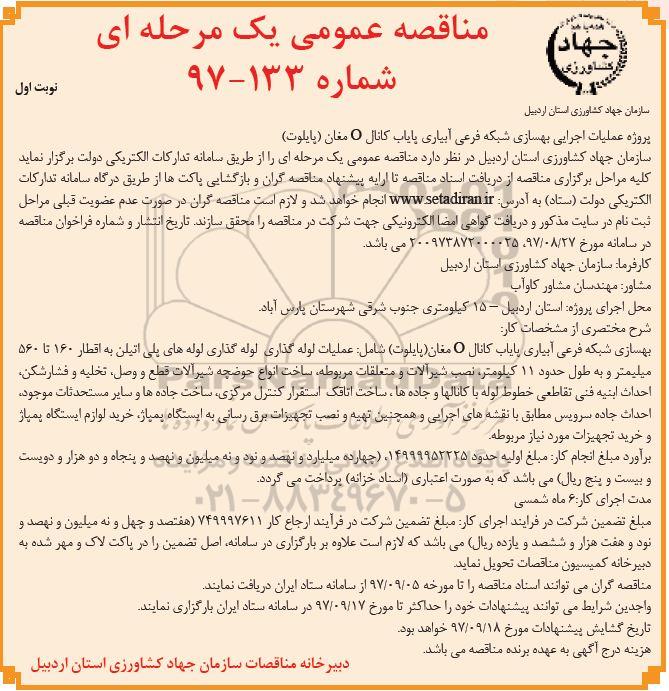 مناقصه عمومی یک مرحله ای
شماره ۱۳۳-۹۷
نوبت اول
جهاد
کشاورزی
سازمان جهاد کشاورزی استان اردبیل
پروژه عملیات اجرایی بهسازی شبکه فرعی آبیاری پایاب کانال O مغان (پایلوت)
سازمان جهاد کشاورزی استان اردبیل در نظر دارد مناقصه عمومی یک مرحله ای را از طریق سامانه تدارکات الکتریکی دولت برگزار نماید
کلیه مراحل برگزاری مناقصه از دریافت اسناد مناقصه تا ارایه پیشنهاد مناقصه گران و بازگشایی پاکت ها از طریق درگاه سامانه تدارکات
الکتریکی دولت (ستاد) به آدرس: www.setadiran.ir انجام خواهد شد و لازم است مناقصه گران در صورت عدم عضویت قبلی مراحل
ثبت نام در سایت مذکور و دریافت گواهی امضا الکترونیکی جهت شرکت در مناقصه را محقق سازند. تاریخ انتشار و شماره فراخوان مناقصه
در سامانه مورخ ۹۷/۰۸/۲۷، ۲۰۰۹۷۳۸۷۲۰۰۰۰۲۵ می باشد.
کارفرما: سازمان جهاد کشاورزی استان اردبیل
مشاور: مهندسان مشاور کاوآب
محل اجرای پروژه: استان اردبیل – ۱۵ کیلومتری جنوب شرقی شهرستان پارس آباد.
شرح مختصری از مشخصات کار:
بهسازی شبکه فرعی آبیاری پایاب کانال O مغان(پایلوت) شامل: عملیات لوله گذاری لوله گذاری لوله های پلی اتیلن به اقطار ۱۶۰ تا ۵۶۰
میلیمتر و به طول حدود ۱۱ کیلومتر، نصب شیرآلات و متعلقات مربوطه، ساخت انواع حوضچه شیرآلات قطع و وصل، تخلیه و فشارشکن،
احداث ابنیه فنی تقاطعی خطوط لوله با کانالها و جاده ها ، ساخت اتاقک استقرار کنترل مرکزی، ساخت جاده ها و سایر مستحدثات موجود،
احداث جاده سرویس مطابق با نقشه های اجرایی و همچنین تهیه و نصب تجهیزات برق رسانی به ایستگاه پمپاژ، خرید لوازم ایستگاه پمپاژ
و خرید تجهیزات مورد نیاز مربوطه.
برآورد مبلغ انجام کار: مبلغ اولیه حدود ۱۴۹۹۹۹۵۲۲۲۵، (چهارده میلیارد و نهصد و نود و نه میلیون و نهصد و پنجاه و دو هزار و دویست
و بیست و پنج ریال) می باشد که به صورت اعتباری (اسناد خزانه) پرداخت می گردد.
مدت اجرای کار:۶ ماه شمسی
مبلغ تضمین شرکت در فرایند اجرای کار: مبلغ تضمین شرکت در فرآیند ارجاع کار ۷۴۹۹۹۷۶۱۱ (هفتصد و چهل و نه میلیون و نهصد و
نود و هفت هزار و ششصد و یازده ریال) می باشد که لازم است علاوه بر بارگزاری در سامانه، اصل تضمین را در پاکت لاک و مهر شده به
دبیرخانه کمیسیون مناقصات تحویل نماید.
مناقصه گران می توانند اسناد مناقصه را تا مورخه ۹۷/۰۹/۰۵ از سامانه ستاد ایران دریافت نمایند.
واجدین شرایط می توانند پیشنهادات خود را حداکثر تا مورخ ۹۷/۰۹/۱۷ در سامانه ستاد ایران بارگزاری نمایند.
تاریخ گشایش پیشنهادات مورخ ۹۷/۰۹/۱۸ خواهد بود.
هزینه درج آگهی به عهده برنده مناقصه می باشد.
دبیرخانه مناقصات سازمان جهاد کشاورزی استان اردبیل
ParsNamadData
۰۲۱-۸۸۳۴۹۶۷۰-۵